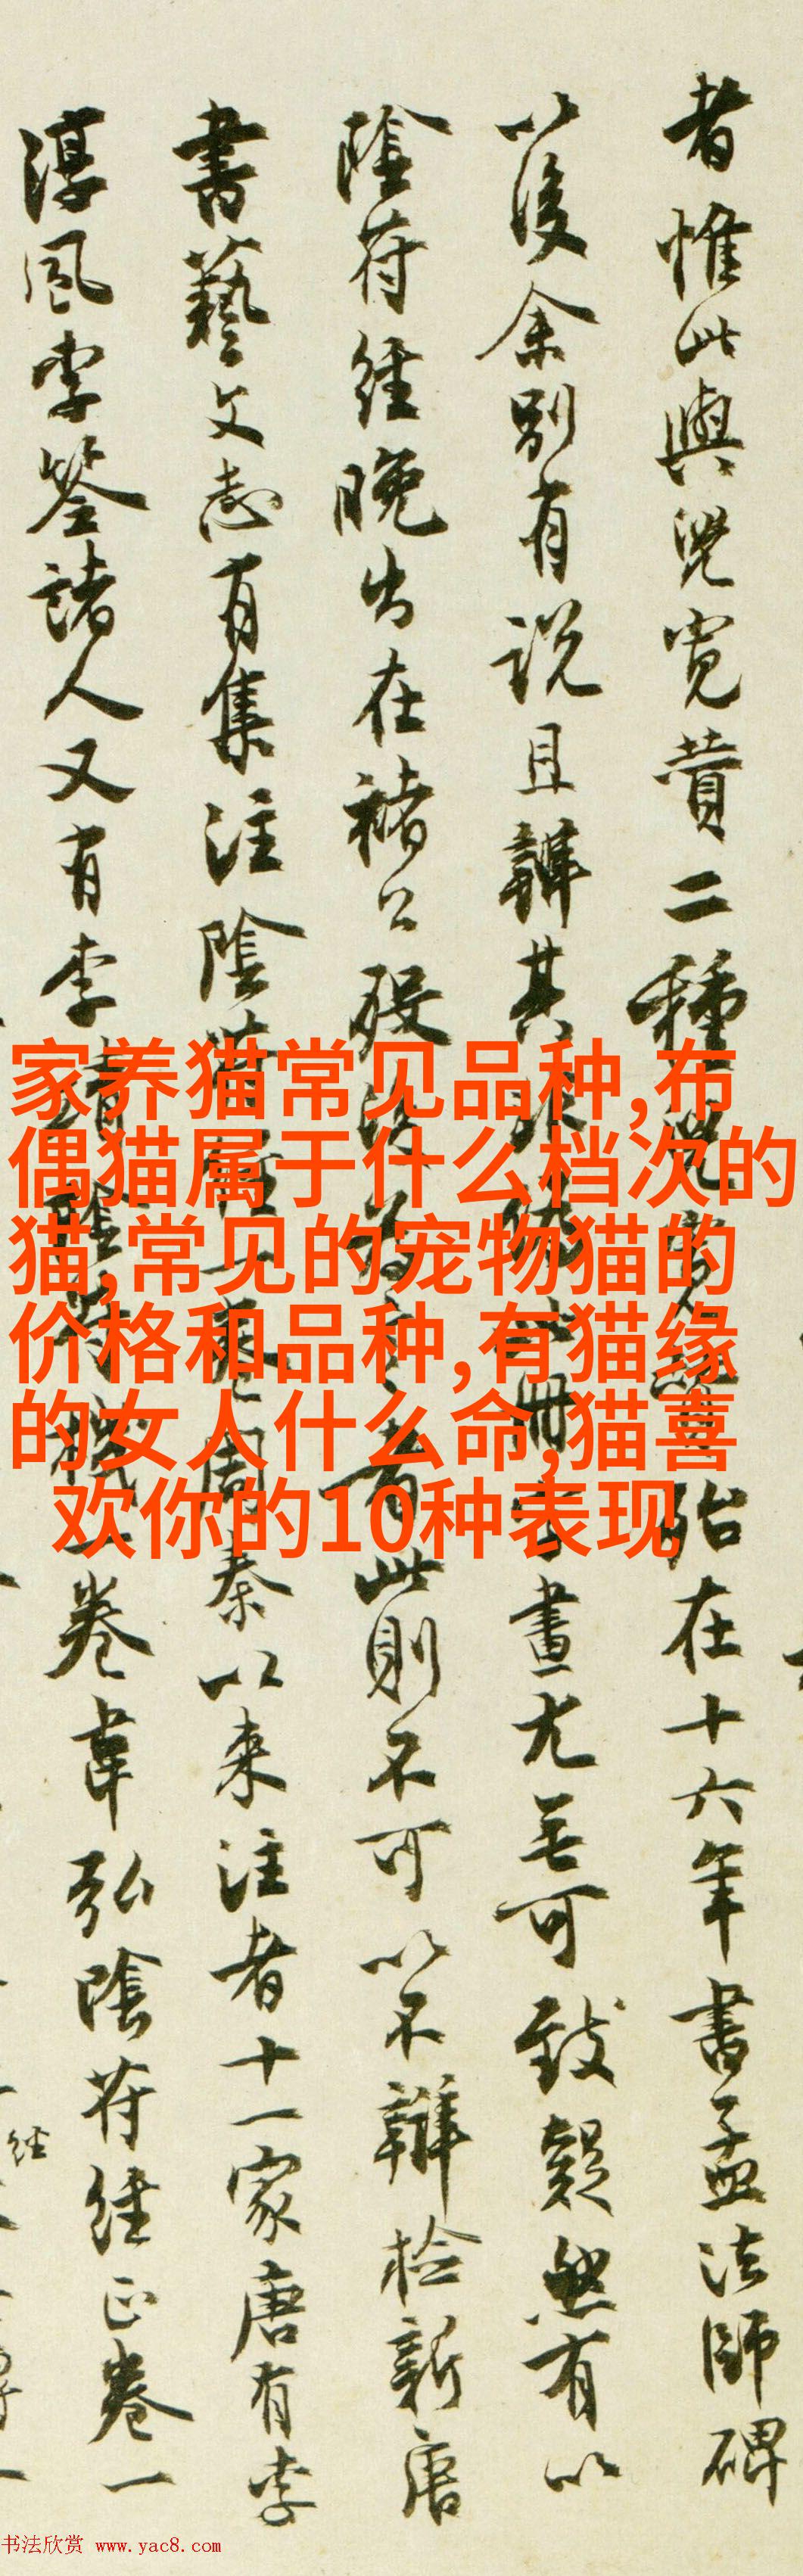 者惟此與兒寬贊二種
殆在十六年書孟法師碑
以後余别有説且辯其
書畫尤無可致疑然有以
陰符經晚出在褚公殁
此則不可以不辯檢新唐
書藝文志有集注陰
周秦以来注者十一家唐有李
淳風李筌諸人又有李
卷韋弘陰符經正卷一
經
家养猫常见品种,布
偶猫属于什么档次的
猫,常见的宠物猫的
价格和品种,有猫缘
的女人什么命,猫喜
欢你的10种表现
书法欣赏 www.yac8.com